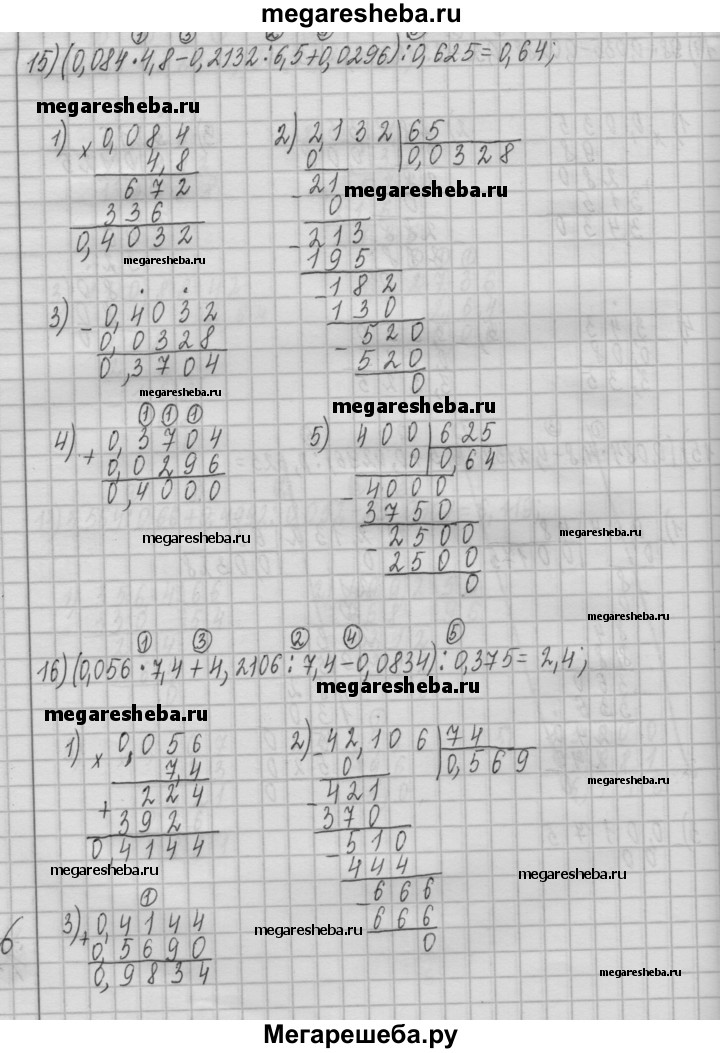 megaresheba.ru
① ③ ② ④ ⑤
15) (0,084·4,8-0,2132:6,5+0,0296):0,625=0,64;
megaresheba.ru
1) × 0,084
4,8
672
336
0,4032
megaresheba.ru
2) 2,132 | 65
0 | 0,0328
- 21
0
megaresheba.ru
- 213
195
- 182
130
- 520
520
0
3) - 0,4032
0,0328
0,3704
megaresheba.ru
megaresheba.ru
① ① ①
4) + 0,3704
0,0296
0,4000
megaresheba.ru
5) 400 | 625
0 | 0,64
- 4000
3750
- 2500
2500
0
megaresheba.ru
megaresheba.ru
① ③ ② ④ ⑤
16) (0,056·7,4+4,2106:7,4-0,0834):0,375=2,4;
megaresheba.ru
megaresheba.ru
1) × 0,056
7,4
+ 224
392
0,4144
megaresheba.ru
2) - 42,106 | 74
0 | 0,569
- 421
370
- 510
444
- 666
666
0
megaresheba.ru
megaresheba.ru
①
3) + 0,4144
0,5690
0,9834
megaresheba.ru
megaresheba.ru
6
Мегарешеба.ру